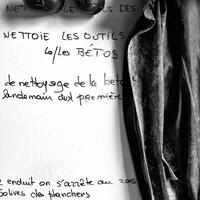 NETTOIE LES OUTILS DES
NETTOIE LES OUTILS
les BÉTOS
de nettoyage de la
lendemain aux première
enduit on s'arrête au
Solives des planchers